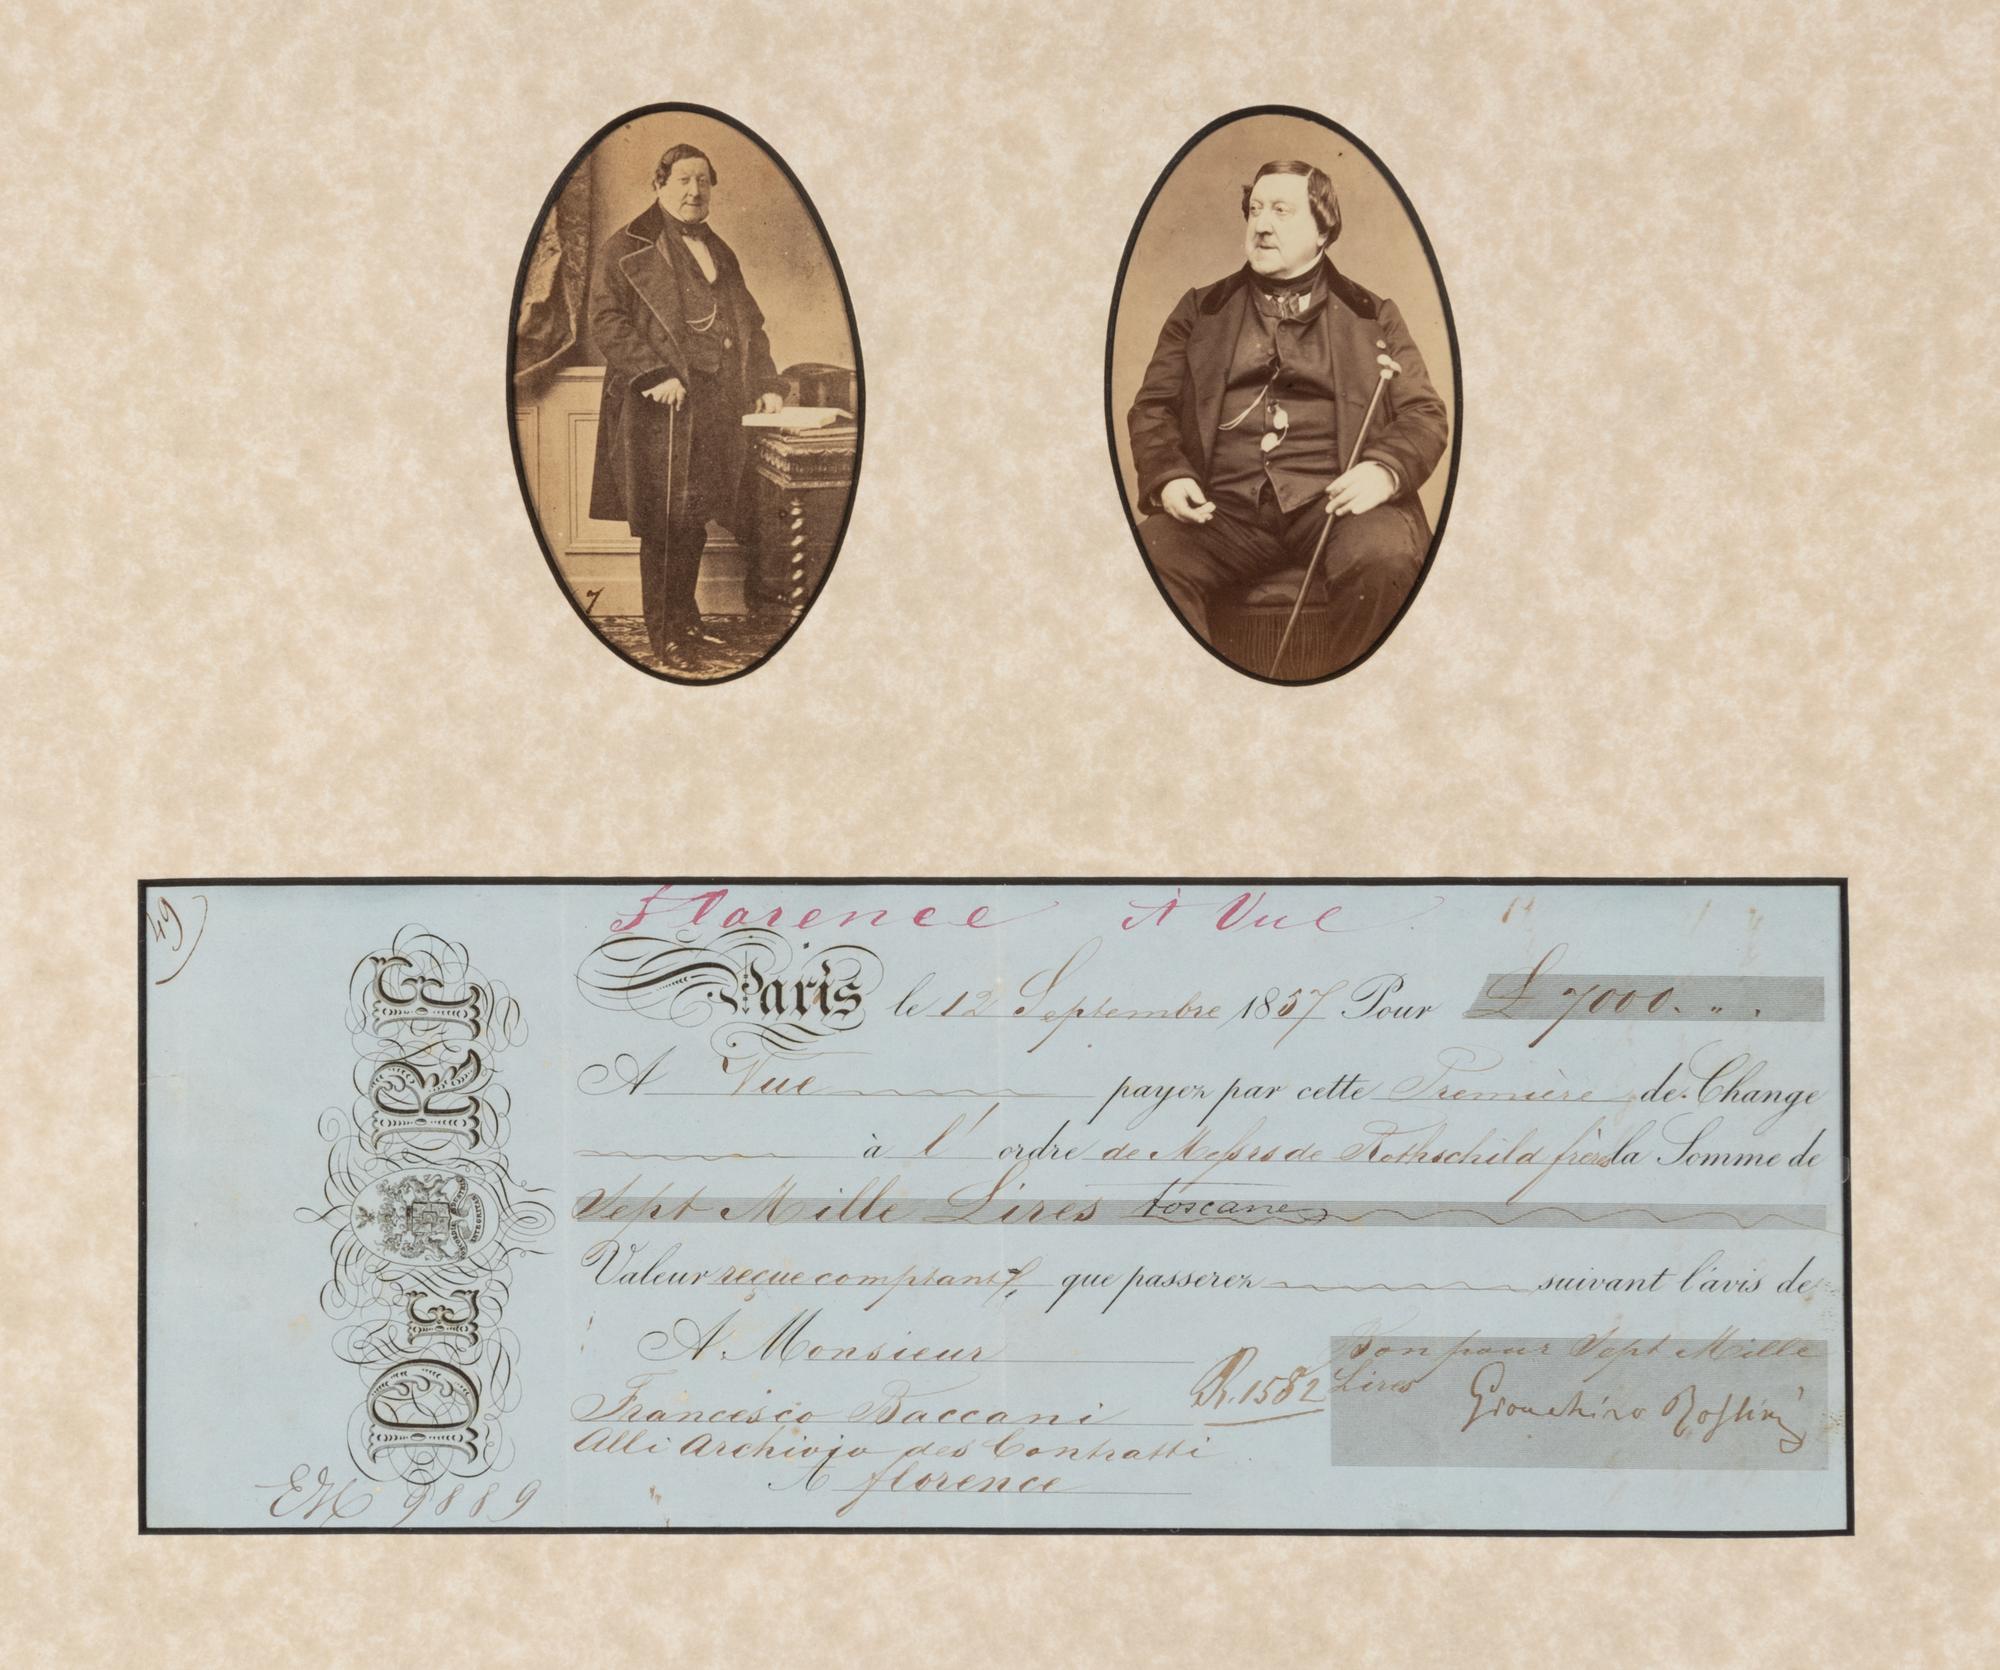 7
49
Florence A Vue
Paris le 12 Septembre 1857 Pour £ 7000. " .
A Vue payez par cette Première de Change
à l' ordre de Messrs de Rothschild frères la Somme de
Sept Mille Lires toscanes
Valeur reçue comptant, que passerez suivant l'avis de
A Monsieur
Francesco Baccani
Alli Archivio des Contratti
A florence
R. 1582
Bon pour Sept Mille
Lires
Giouchino Rossini
D E R F
9889